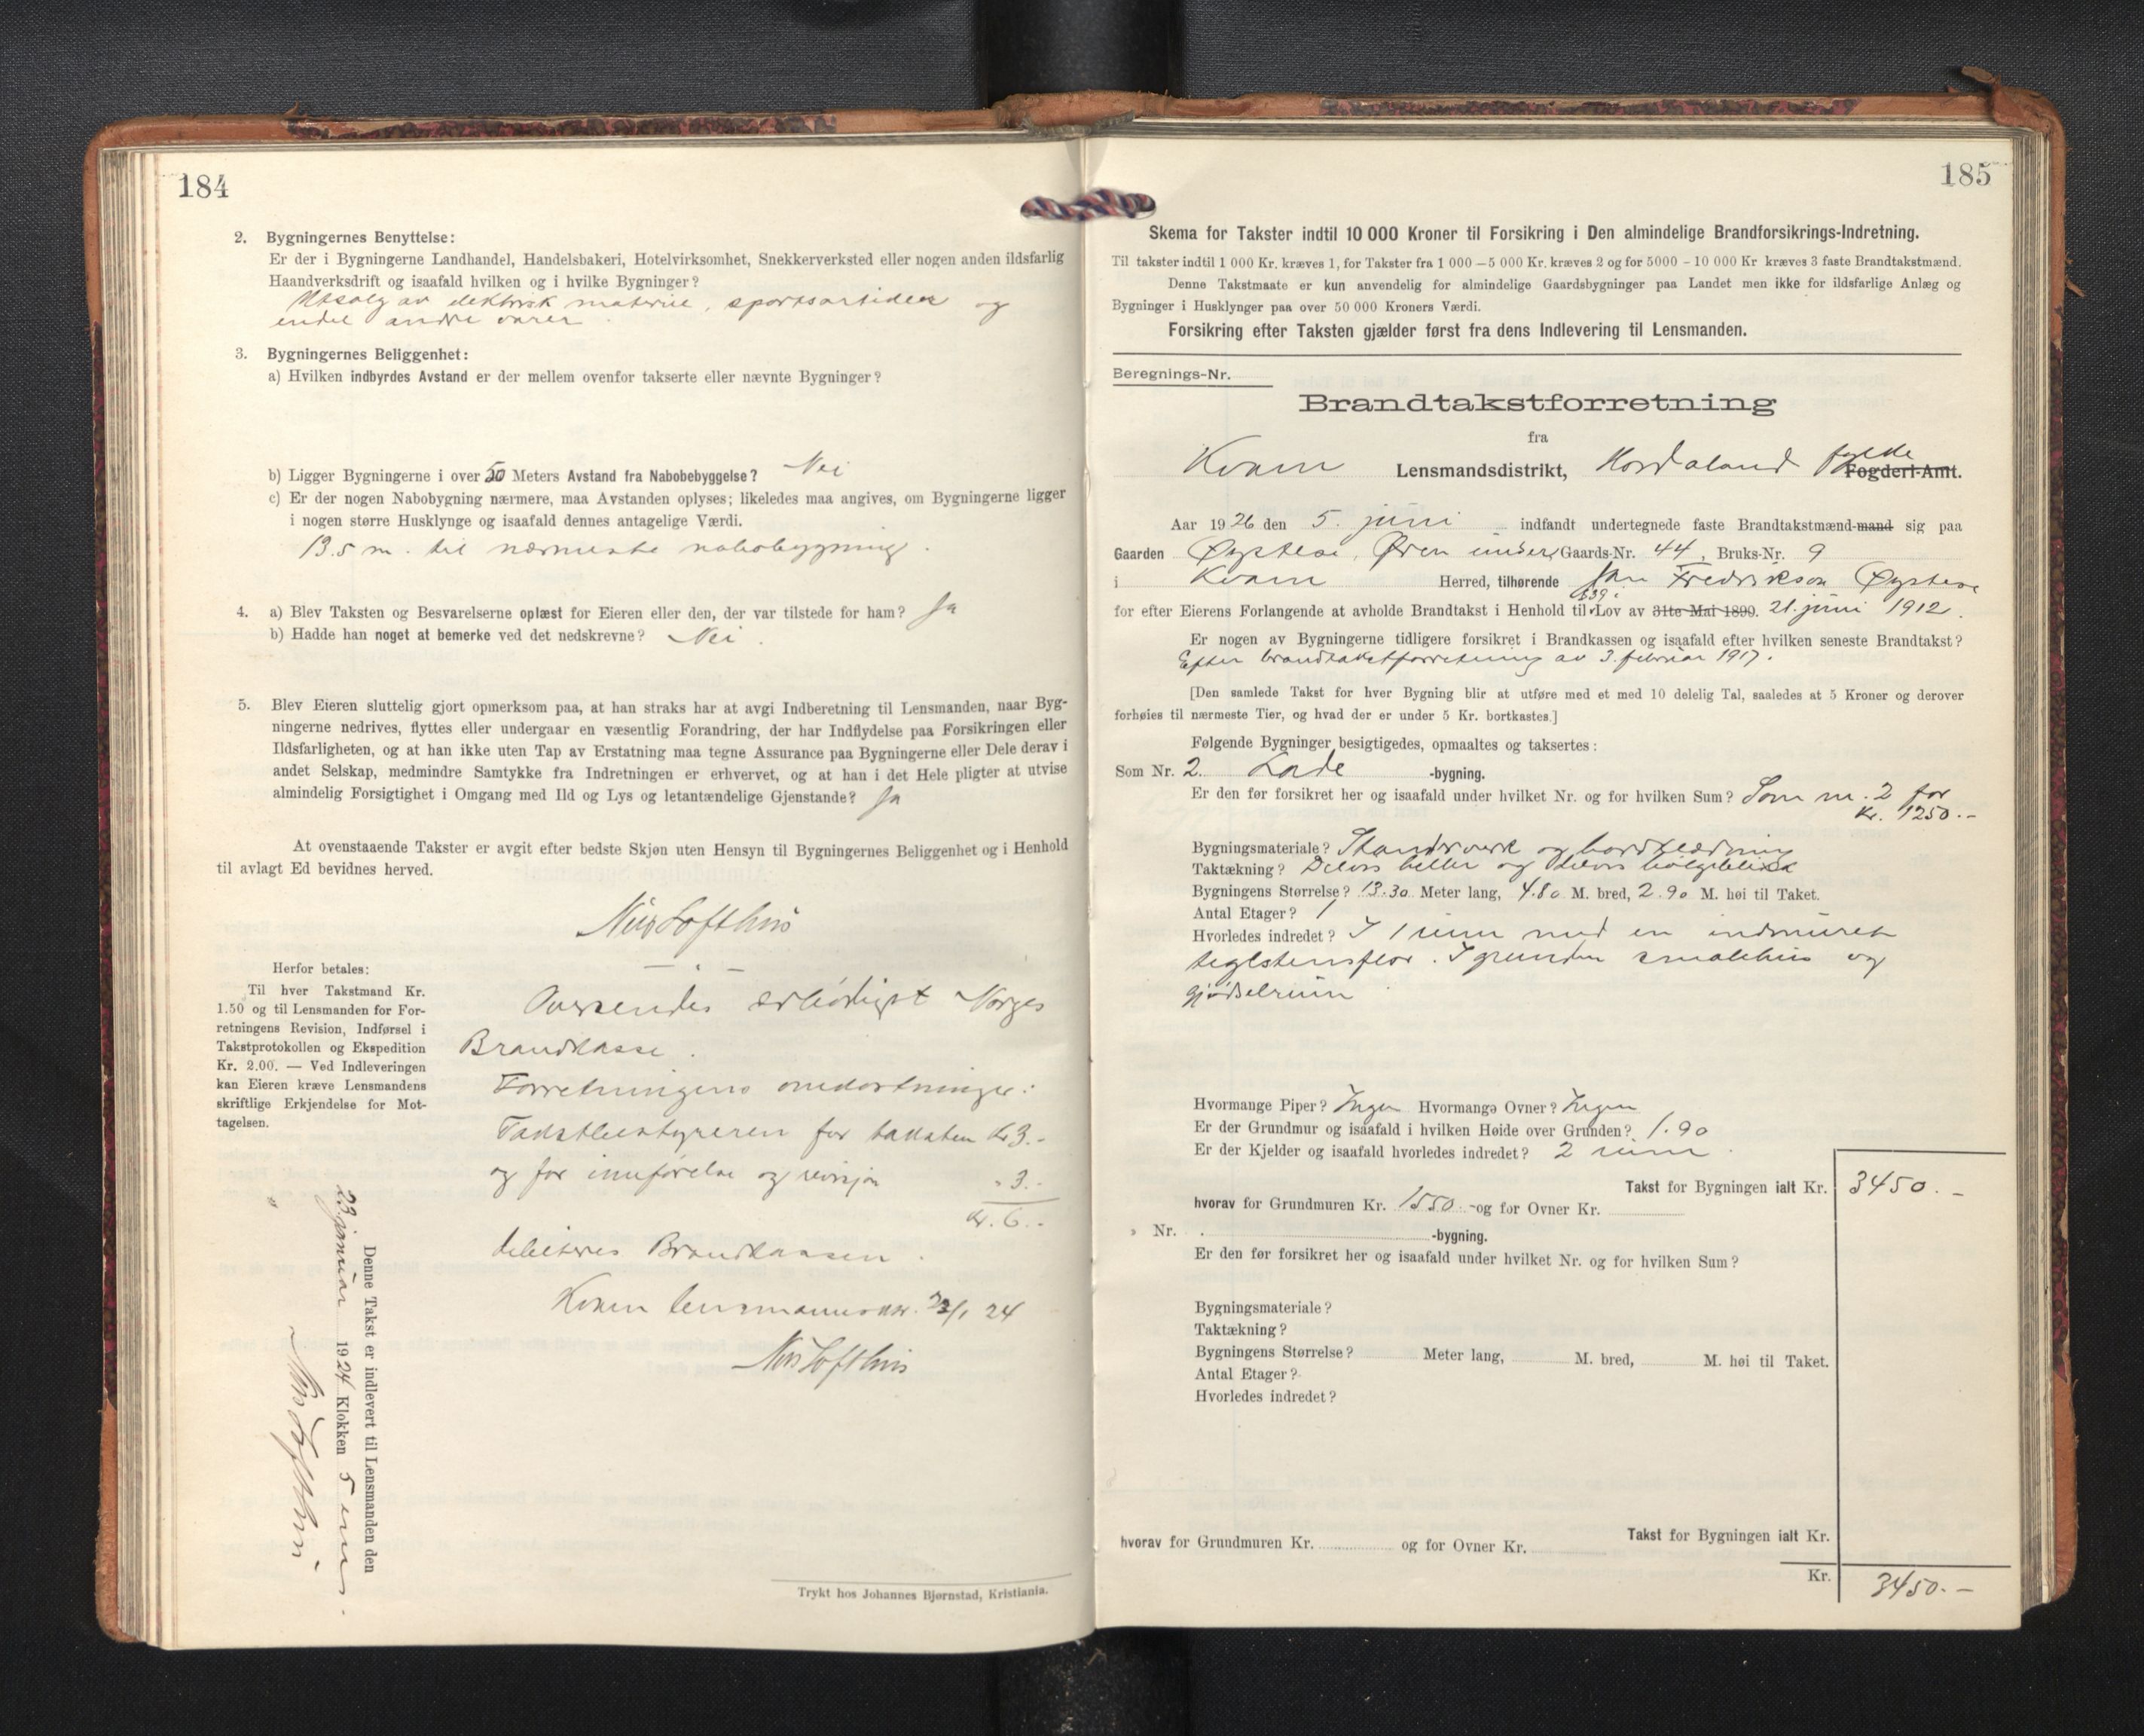 184
2. Bygningernes Benyttelse:
Er der i Bygningerne Landhandel, Handelsbakeri, Hotelvirksomhet, Snekkerverksted eller nogen anden ildsfarlig
Haandverksdrift og isaafald hvilken og i hvilke Bygninger?
Utsalg av elektrisk materiel, sportsartikler og
endel andre varer.
3. Bygningernes Beliggenhet:
a) Hvilken indbyrdes Avstand er der mellem ovenfor takserte eller nævnte Bygninger?
b) Ligger Bygningerne i over 50 Meters Avstand fra Nabobebyggelse? Nei
c) Er der nogen Nabobygning nærmere, maa Avstanden oplyses; likeledes maa angives, om Bygningerne ligger
i nogen større Husklynge og isaafald dennes antagelige Værdi.
13.5 m. til nærmeste nabobygning.
4. a) Blev Taksten og Besvarelserne oplæst for Eieren eller den, der var tilstede for ham? Ja
b) Hadde han noget at bemerke ved det nedskrevne? Nei.
5. Blev Eieren sluttelig gjort opmerksom paa, at han straks har at avgi Indberetning til Lensmanden, naar Byg-
ningerne nedrives, flyttes eller undergaar en væsentlig Forandring, der har Indflydelse paa Forsikringen eller
Ildsfarligheten, og at han ikke uten Tap av Erstatning maa tegne Assurance paa Bygningerne eller Dele derav i
andet Selskap, medmindre Samtykke fra Indretningen er erhvervet, og at han i det Hele pligter at utvise
almindelig Forsigtighet i Omgang med Ild og Lys og letantændelige Gjenstande? Ja
At ovenstaaende Takster er avgit efter bedste Skjøn uten Hensyn til Bygningernes Beliggenhet og i Henhold
til avlagt Ed bevidnes herved.
Nils Lofthus
Herfor betales:
Til hver Takstmand Kr.
1.50 og til Lensmanden for For-
retningens Revision, Indførsel i
Takstprotokollen og Ekspedition
Kr. 2.00. — Ved Indleveringen
kan Eieren kræve Lensmandens
skriftlige Erkjendelse for Mot-
tagelsen.
Oversendes ærbødigst Norges
Brandkasse.
Forretningens omkostninger:
Takstbestyreren for taksten Kr 3.-
og for innførelse og revisjon " 3.-
Kr. 6.-
debiteres Brandkassen.
Kvam lensmannskr. 23/1 24
Nils Lofthus
Denne Takst er indlevert til Lensmanden den
23 januar 1924 Klokken 5 em.
Nils Lofthus
Trykt hos Johannes Bjørnstad, Kristiania.
185
Skema for Takster indtil 10 000 Kroner til Forsikring i Den almindelige Brandforsikrings-Indretning.
Til takster indtil 1 000 Kr. kræves 1, for Takster fra 1 000 – 5 000 Kr. kræves 2 og for 5000 – 10 000 Kr kræves 3 faste Brandtakstmænd.
Denne Takstmaate er kun anvendelig for almindelige Gaardsbygninger paa Landet men ikke for ildsfarlige Anlæg og
Bygninger i Husklynger paa over 50 000 Kroners Værdi.
Forsikring efter Taksten gjælder først fra dens Indlevering til Lensmanden.
Beregnings-Nr.
Brandtakstforretning
fra
Kvam Lensmandsdistrikt, Hordaland fylde Fogderi-Amt.
Aar 1926 den 5. juni indfandt undertegnede faste Brandtakstmænd-mand sig paa
Gaarden Øystese, Øren undere, Gaards-Nr. 44, Bruks-Nr. 9
i Kvam Herred, tilhørende Jan Fredrikson Øystese
for efter Eierens Forlangende at avholde Brandtakst i Henhold til § 39 i Lov av 31te Mai 1899. 21. juni 1912.
Er nogen av Bygningerne tidligere forsikret i Brandkassen og isaafald efter hvilken seneste Brandtakst?
Efter brandtakstforretning av 3. februar 1917.
[Den samlede Takst for hver Bygning blir at utføre med et med 10 delelig Tal, saaledes at 5 Kroner og derover
forhøies til nærmeste Tier, og hvad der er under 5 Kr. bortkastes.]
Følgende Bygninger besigtigedes, opmaaltes og taksertes:
Som Nr. 2. Lade -bygning.
Er den før forsikret her og isaafald under hvilket Nr. og for hvilken Sum? Som nr. 2 for
kr. 1250.-
Bygningsmateriale? Standverk og bordklædning
Taktækning? Delvis heller og delvis bølgeblikk
Bygningens Størrelse? 13.30 Meter lang, 4.80 M. bred, 2.90 M. høi til Taket.
Antal Etager? 1
Hvorledes indredet? I 1 rum med en indmuret
teglstensflor. I grunden smalehus og
gjødselrum
Hvormange Piper? Ingen Hvormange Ovner? Ingen
Er der Grundmur og isaafald i hvilken Høide over Grunden? 1.90
Er der Kjelder og isaafald hvorledes indredet? 2 rum.
Takst for Bygningen ialt Kr. 3450.-
hvorav for Grundmuren Kr. 1550.- og for Ovner Kr.
» Nr. -bygning.
Er den før forsikret her og isaafald under hvilket Nr. og for hvilken Sum?
Bygningsmateriale?
Taktækning?
Bygningens Størrelse? Meter lang, M. bred, M. høi til Taket.
Antal Etager?
Hvorledes indredet?
Takst for Bygningen ialt Kr.
hvorav for Grundmuren Kr. og for Ovner Kr.
Kr. 3450.-